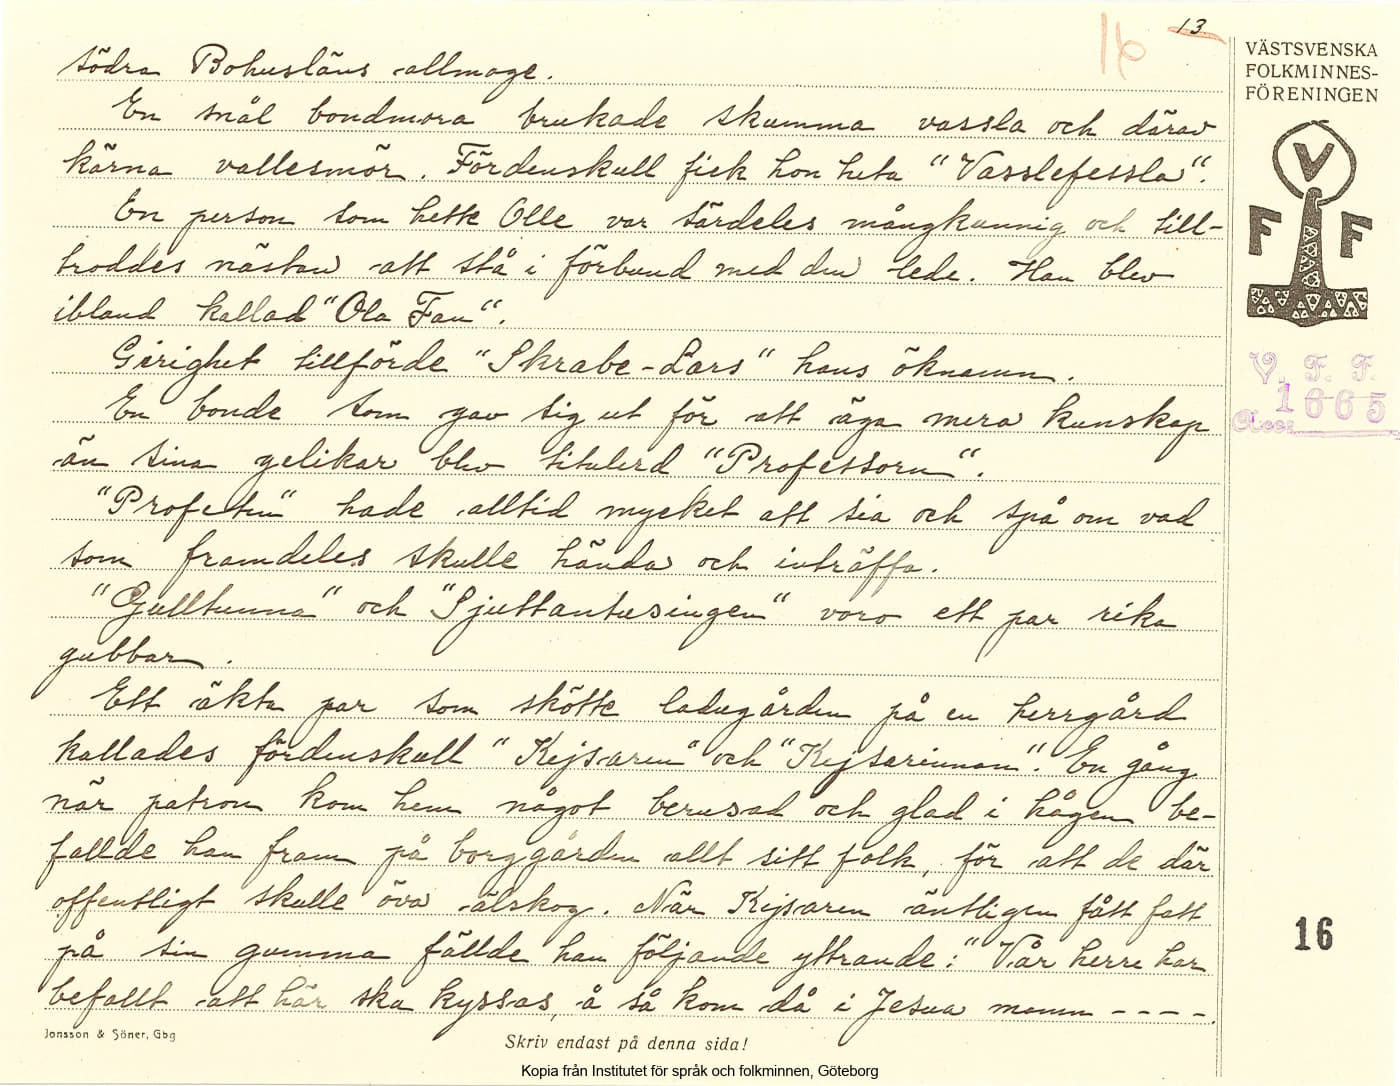 16
13.
södra Bohusläns allmoge.
En snål bondmora brukade skumma vassla och därav
kärna vallesmör. Fördenskull fick hon heta "Vasslefessla".
En person som hette Olle var särdeles mångkunnig och till-
troddes nästan att stå i förbund med den lede. Han blev
ibland kallad "Ola Fan".
Girighet tillförde "Skrabe-Lars" hans öknamn.
En bonde som gav sig ut för att äga mera kunskap
än sina gelikar blev titulerd "Professorn".
"Profeten" hade alltid mycket att sia och spå om vad
som framdeles skulle hända och inträffa.
"Gulltunna" och "Sjuttantusingen" voro ett par rika
gubbar.
Ett äkta par som skötte ladugården på en herrgård
kallades fördenskull "Kejsaren" och "Kejsarinnan". En gång
när patron kom hem något berusad och glad i hågen be-
fallde han fram på borggården allt sitt folk, för att de där
offentligt skulle öva älskog. När Kejsaren äntligen fått fatt
på sin gumma fällde han följande yttrande: "Vår herre har
befallt att här ska kyssas, å så kom då i Jesua namn ----.
VÄSTSVENSKA
FOLKMINNES-
FÖRENINGEN
V
F F
V. F. F.
Acc: 1665
16
Jonsson & Söner, Gbg
Skriv endast på denna sida!
Kopia från Institutet för språk och folkminnen, Göteborg